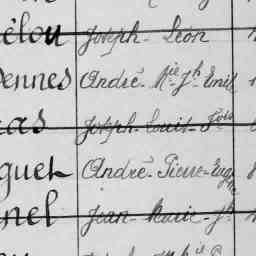 élou Joseph-Léon
Dennes André-Nie-Jh Emile
cas Joseph-Louis-Fois
guet André-Pierre-Eugne
nel Jean-Marie-Jh